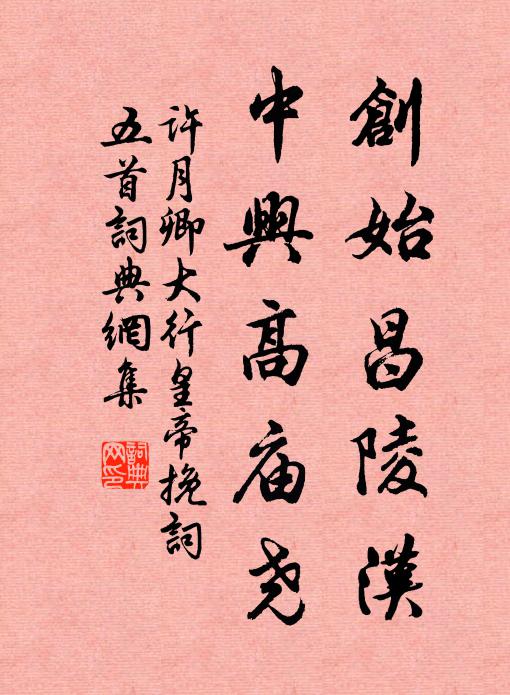 創始昌陵漢
中興高庙尧
許月卿大行皇帝挽詞
五首詞典網集
詞典
网印